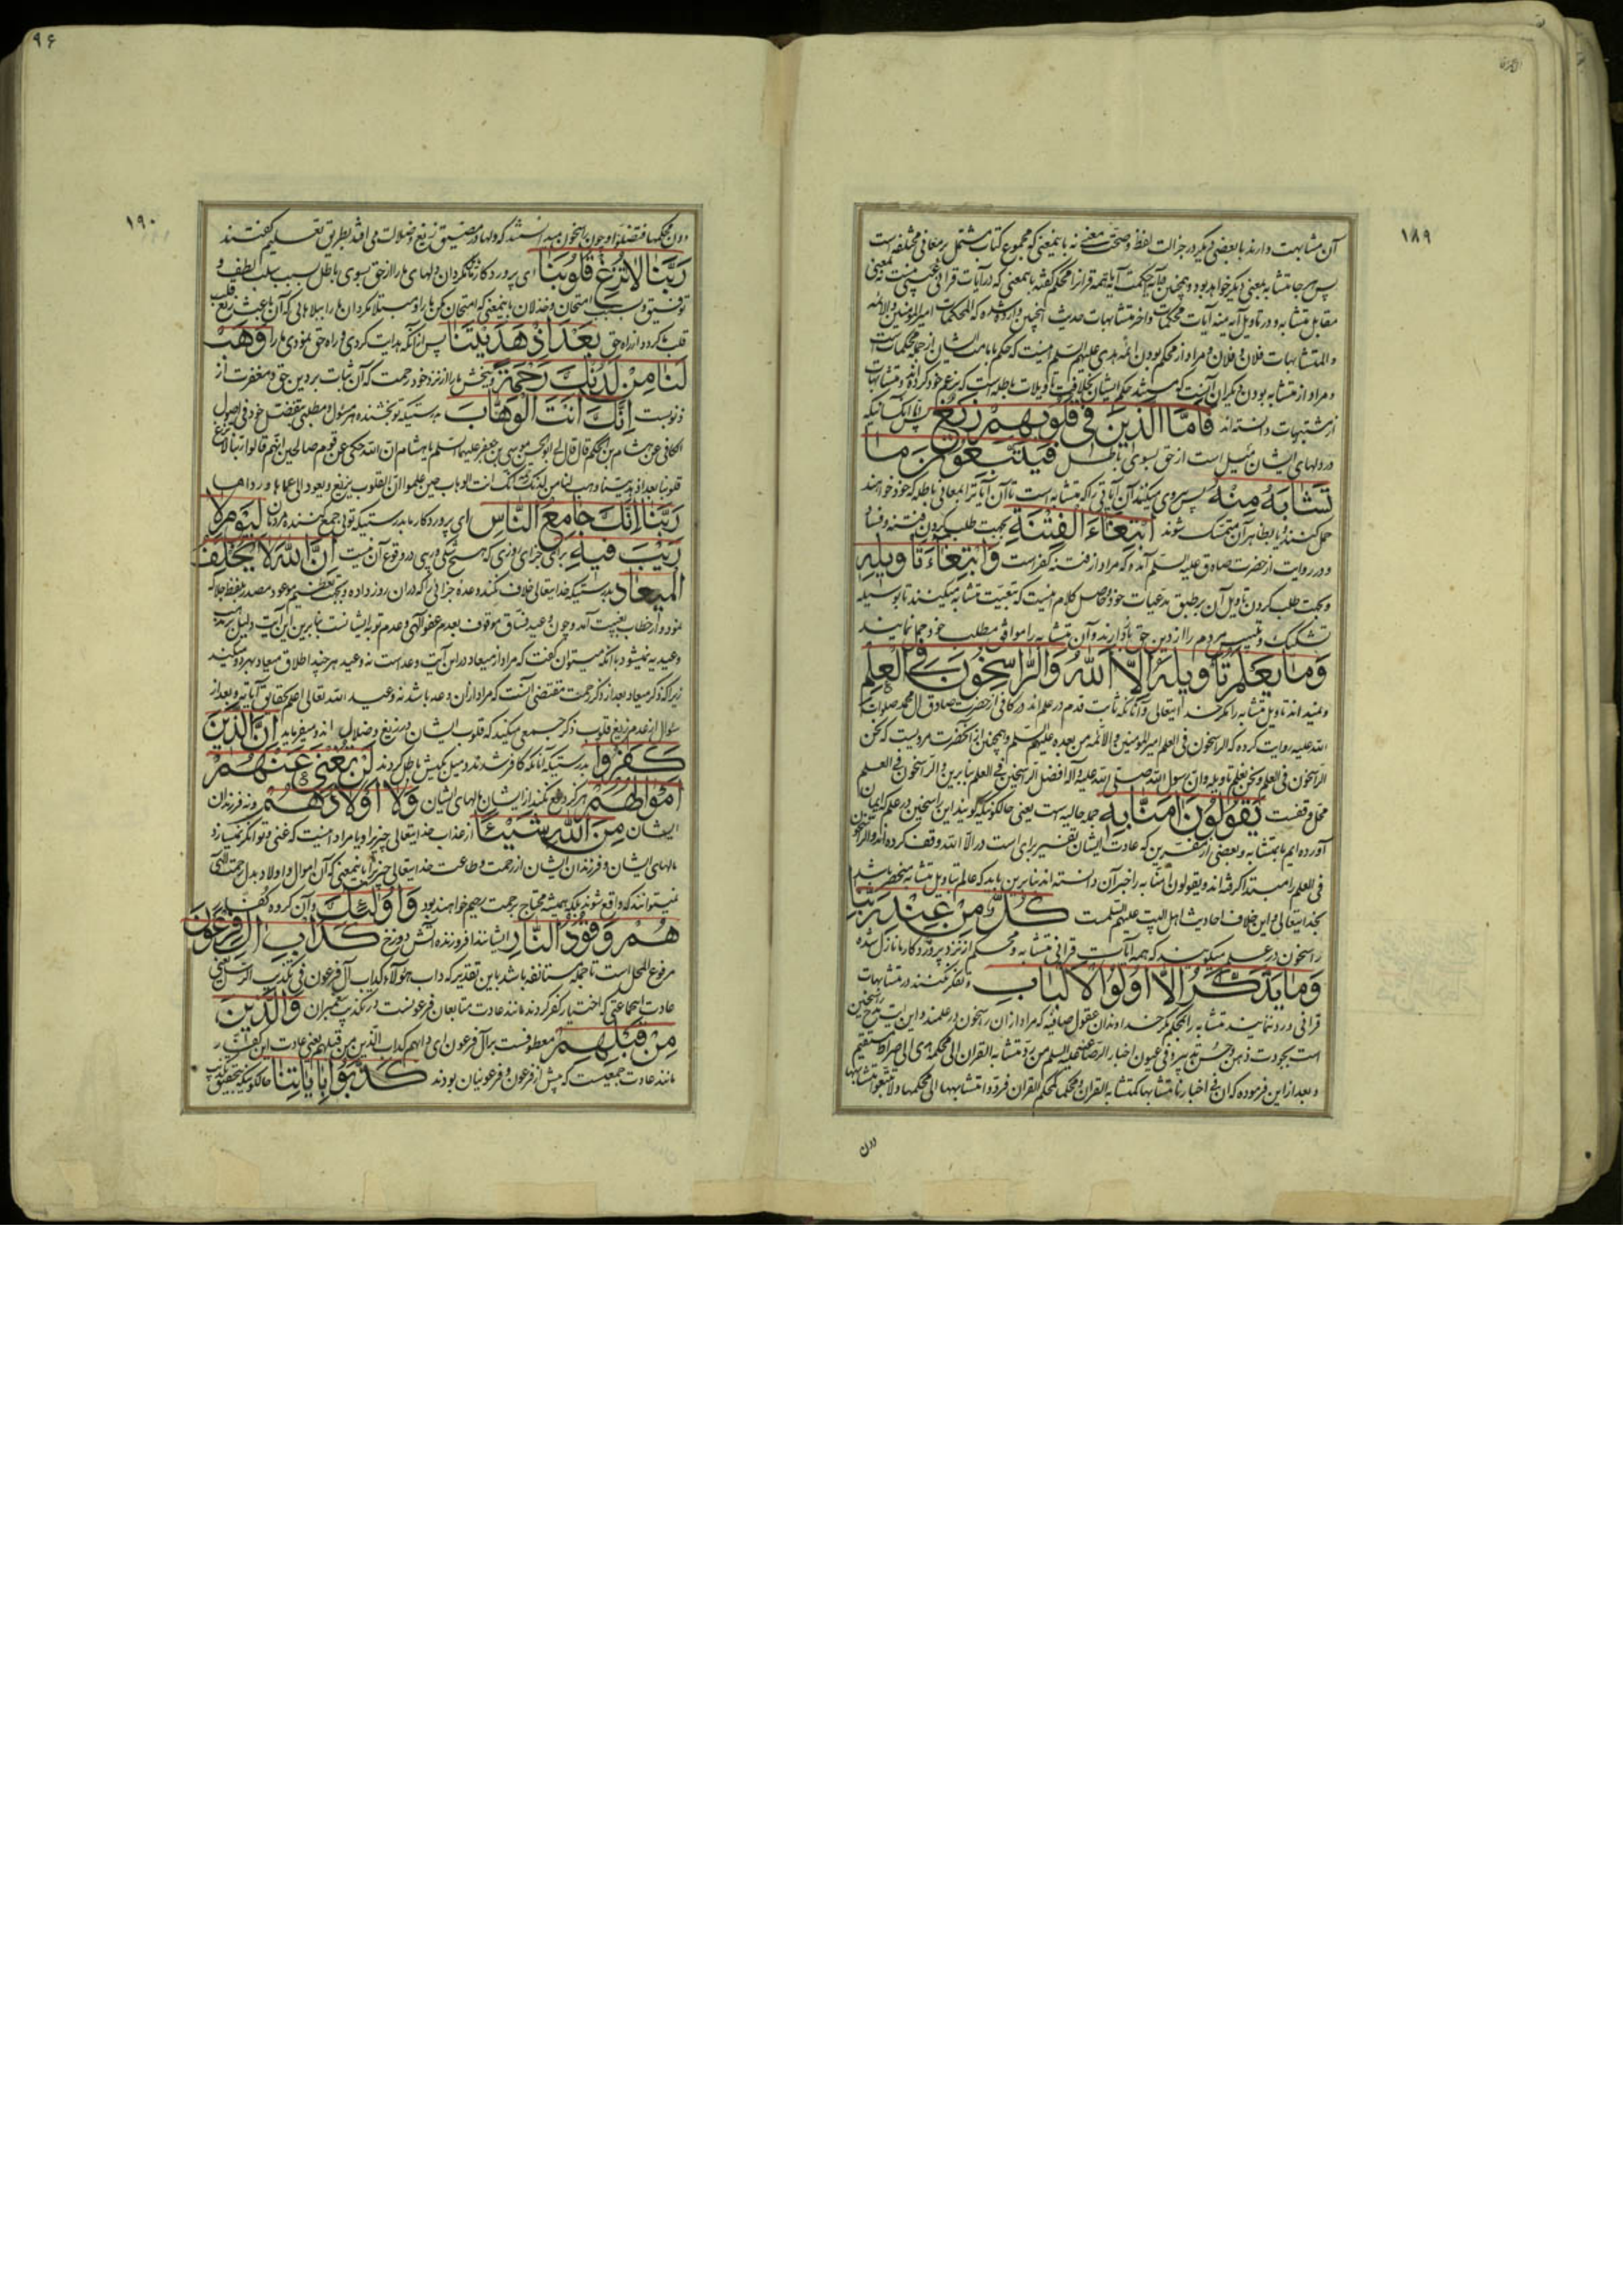 ۱۸۹
آن مشابهت دارند با بعضی دیگر در جزالت لفظ و صحت معنی نه باینمعنی که مجموع کتاب مشتمل بر معانی مختلفه است
پس هر جا متشابه بمعنی دیگر خواهد بود و همچنان در آیه آیاته همه قرانرا محکم گفته باینمعنی که در آیات قرانی
مقابل متشابه و در تاویل آیه منه آیات محکمات و اخر متشابهات حدیث وارد شده که المحکمات امیرالمؤمنین والائمه
والمتشابهات فلان و فلان و مراد از محکم بودن ائمه هدی علیهم السلم اینست که حکم بامامت ایشان از جمله محکمات است
و مراد از متشابه بودن دیگران آنست که تاویلات باطله است که بزعم خود کرده و متشابهات
از مشتبهات دانسته‌اند فَاَمَّا الَّذِینَ فی قُلُوبِهِمْ زَیْغٌ پس اما آنکسانیکه
در دلهای ایشان میل است از حق بسوی باطل فَیَتَّبِعُونَ مَا
تَشَابَهَ مِنْهُ پس پیروی میکنند آن آیاتی را که متشابه است تا آن آیاترا بمعانی باطله که خود خواهند
حمل کنند و یا بظاهر آن متمسک شوند ابْتِغَاءَ الْفِتْنَةِ بجهت طلب کردن فتنه و فساد
و در روایت از حضرت صادق علیه السلم آمده که مراد از فتنه کفر است وَابْتِغَاءَ تَاْوِیلِهِ
و بجهت طلب کردن تاویل آن بر طبق مدعیات خود و حاصل کلام اینست که تبعیت متشابه میکنند تا بوسیله
تشکیک و تلبیس مردم را از دین حق بازدارند و آن متشابه را موافق مطلب خود وانمایند
وَمَا یَعْلَمُ تَاْوِیلَهُ اِلَّا اللّٰهُ وَالرَّاسِخُونَ فِی الْعِلْمِ
و نمیداند تاویل متشابه را مگر خدایتعالی و آنانکه ثابت قدم در علم‌اند در کافی از حضرت صادق ال محمد صلوات
الله علیه روایت کرده که الراسخون فی العلم امیرالمؤمنین والائمه من بعده علیهم السلم و همچنین از آنحضرت مرویست که نحن
الراسخون فی العلم و نحن نعلم تاویله وان رسول الله صلی الله علیه وآله افضل الراسخین فی العلم بنابرین والراسخون فی العلم
محل وقفست یَقُولُونَ اٰمَنَّا بِهِ جمله حالیه است یعنی حالکونیکه گویند این راسخین در علم که ایمان
آورده‌ایم بمتشابه و بعضی از مفسرین که عادت ایشان تفسیر برای است در الا الله وقف کرده‌اند والراسخون
فی العلم را مبتدا گرفته‌اند و یقولون امنا به را خبر آن دانسته‌اند بنابرین باید که عالم بتاویل متشابه منحصر باشد
بخدایتعالی و این خلاف احادیث اهل البیت علیهم السلمست کُلٌّ مِنْ عِنْدِ رَبِّنَا
راسخون در علم میکویند که همه آیات قرانی متشابه و محکم از نزد پروردگار ما نازل شده
وَمَا یَذَّکَّرُ اِلَّا اُولُوا الْاَلْبَابِ و تفکر نکنند در متشابهات
قرانی و رد ننمایند متشابه را بمحکم مگر خداوندان عقول صافیه که مراد از ان راسخون در علمند و این مدح راسخین
است بجودت ذهن و حسن تدبر و فی عیون اخبار الرضا علیه السلم من رد متشابه القران الی محکمه هدی الی صراط مستقیم
و بعد از این فرموده که ان فی اخبارنا متشابها کمتشابه القران و محکما کمحکم القران فردوا متشابهها الی محکمها ولا تتبعوا متشابهها
دون
۹۶
۱۹۰
دون محکمها فتضلوا و چون راسخون میدانستند که دلها در مضیق زیغ و ضلالت می‌افتد بطریق تعلیم گفتند
رَبَّنَا لَا تُزِغْ قُلُوبَنَا ای پروردگار ما مگردان دلهای ما را از حق بسوی باطل بسبب سلب لطف و
توفیق و بسبب امتحان و خذلان باینمعنی که امتحان مکن ما را و مبتلا مگردان ما را ببلاهایی که آن باعث زیغ قلب
قلب گردد از راه حق بَعْدَ اِذْ هَدَیْتَنَا پس از آنکه هدایت کردی و راه حق نمودی ما را وَهَبْ
لَنَا مِنْ لَدُنْکَ رَحْمَةً و ببخش ما را از نزد خود رحمت که آن ثبات بر دین حق و مغفرت از
ذنوبست اِنَّکَ اَنْتَ الْوَهَّابُ بدرستیکه تو بخشنده هر مسئول و مطلبی بفضل خود فی اصول
الکافی عن هشام بن الحکم قال قال لی ابوالحسن موسی بن جعفر علیهما السلم یا هشام ان الله حکی عن قوم صالحین انهم قالوا ربنا لا تزغ
قلوبنا بعد اذ هدیتنا وهب لنا من لدنک رحمة انک انت الوهاب حین علموا ان القلوب تزیغ وتعود الی عماها ورداها
رَبَّنَا اِنَّکَ جَامِعُ النَّاسِ ای پروردگار ما بدرستیکه تویی جمع کننده مردمان لِیَوْمٍ لَا
رَیْبَ فِیهِ برای جزای روزی که هیچ شکی و ریبی در وقوع آن نیست اِنَّ اللّٰهَ لَا یُخْلِفُ
الْمِیعَادَ بدرستیکه خدایتعالی خلاف نکند وعده جزائی را که در ان روز داده و بجهت تعظیم موعود مصدر بلفظ جلاله
نمود و از خطاب بغیبت آمد و چون وعید فساق موقوف بعدم عفو الهی و عدم توبه ایشانست بنابرین این آیت دلیل بر مذهب
وعیدیه نمیشود با آنکه میتوان گفت که مراد از میعاد در این آیت وعد است نه وعید هر چند اطلاق میعاد بهر دو میکنند
زیرا که ذکر میعاد بعد از ذکر رحمت مقتضی آنست که مراد از ان وعد باشد نه وعید الله تعالی اعلم بحقایق آیاته و بعد از
سئوال از عدم زیغ قلوب ذکر جمعی میکند که قلوب ایشان در زیغ و ضلال‌اند و میفرماید اِنَّ الَّذِینَ
کَفَرُوا بدرستیکه آنانکه کافر شدند و میل بکیش باطل کردند لَنْ تُغْنِیَ عَنْهُمْ
اَمْوَالُهُمْ هرگز دفع نکند از ایشان مالهای ایشان وَلَا اَوْلَادُهُمْ و نه فرزندان
ایشان مِنَ اللّٰهِ شَیْئًا از عذاب خدایتعالی چیزیرا و یا مراد اینست که غنی و توانگر نمیسازد
مالهای ایشان و فرزندان ایشان از رحمت و طاعت خدایتعالی چیزیرا باینمعنی که آن اموال و اولاد بدل رحمت الهی
نمیتوانند که واقع شوند بلکه همیشه محتاج برحمت رحیم خواهند بود وَاُولٰئِکَ و آن گروه کفار
هُمْ وَقُودُ النَّارِ ایشانند افروزنده آتش دوزخ کَدَاْبِ اٰلِ فِرْعَوْنَ
مرفوع المحل است تا جمله مستانفه باشد باین تقدیر که داب هؤلاء کداب آل فرعون فی تکذیب الرسل یعنی
عادت اینجماعتی که اختیار کفر کردند مانند عادت متابعان فرعونست در تکذیب پیغمبران وَالَّذِینَ
مِنْ قَبْلِهِمْ معطوفست بر آل فرعون ای دابهم کداب الذین من قبلهم یعنی عادت این کفار
مانند عادت جمعیست که پیش از فرعون و فرعونیان بودند کَذَّبُوا بِاٰیَاتِنَا حالکونیکه بتحقیق تکذیب